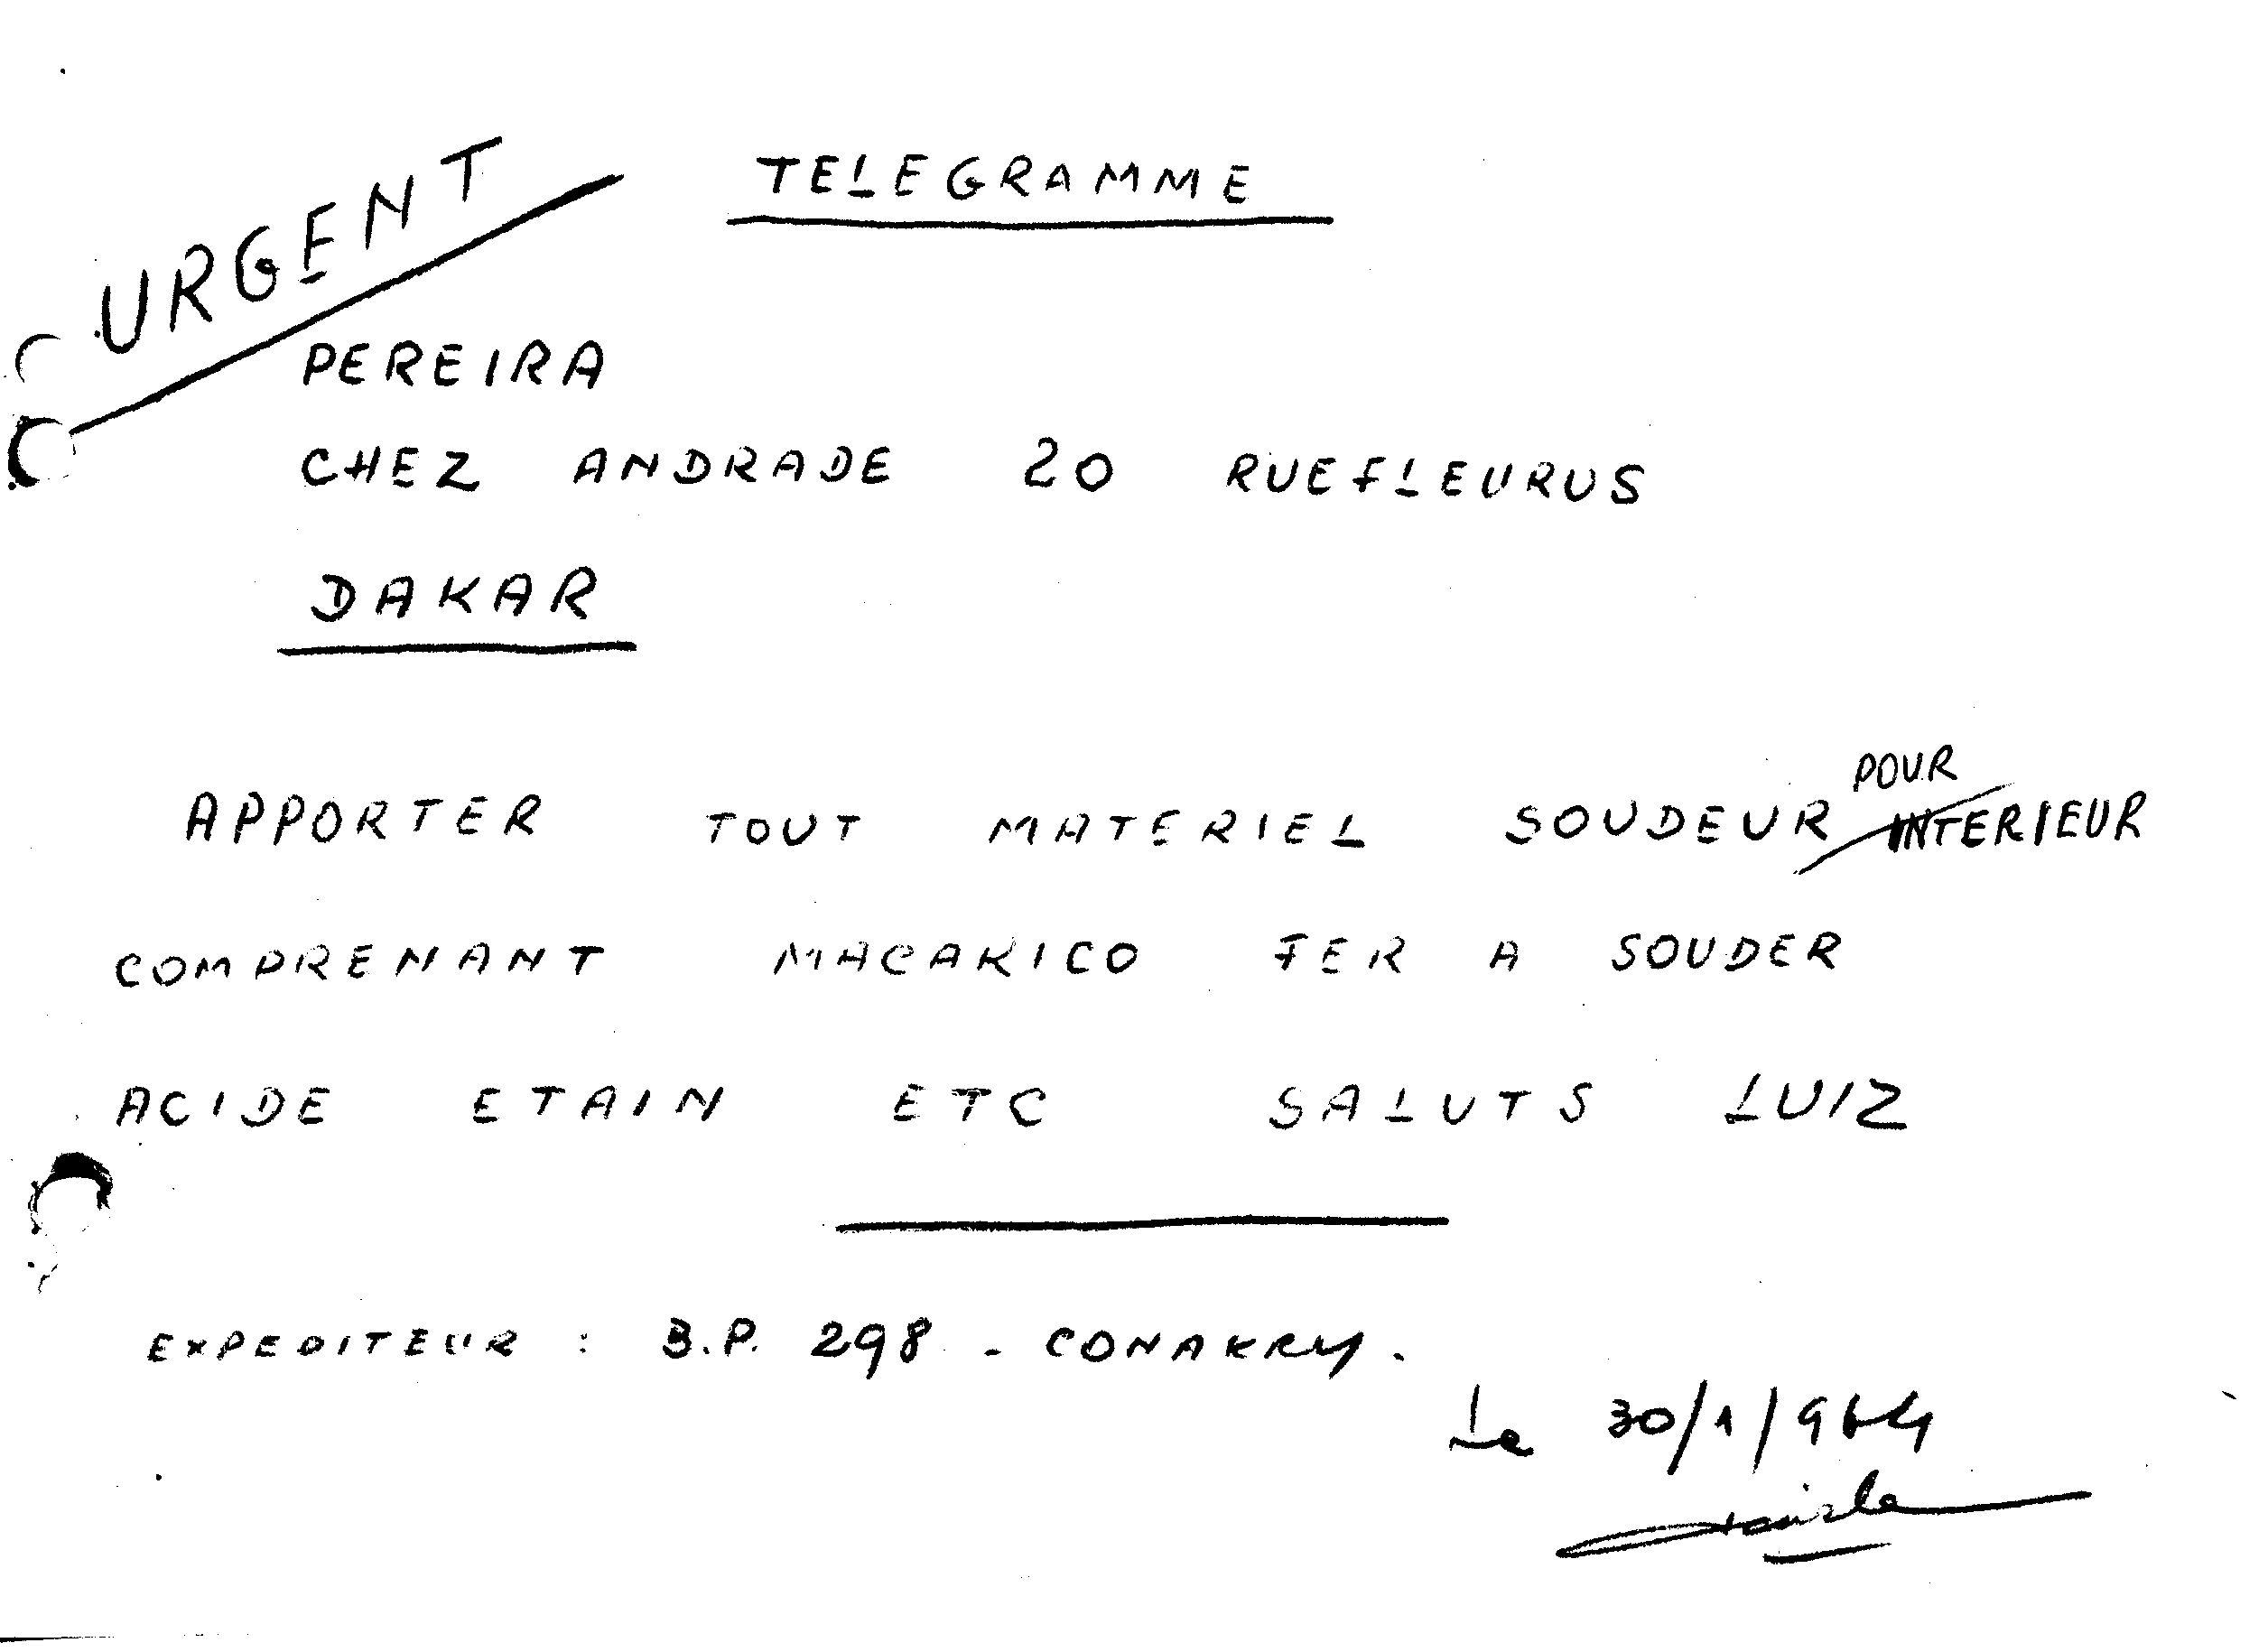 URGENT
TELEGRAMME
PEREIRA
CHEZ ANDRADE 20 RUEFLEURUS
DAKAR
APPORTER TOUT MATERIEL SOUDEUR POUR INTERIEUR
COMPRENANT MACARICO FER A SOUDER
ACIDE ETAIN ETC SALUTS LUIZ
EXPEDITEUR : B.P. 298 - CONAKRY.
Le 30/1/964